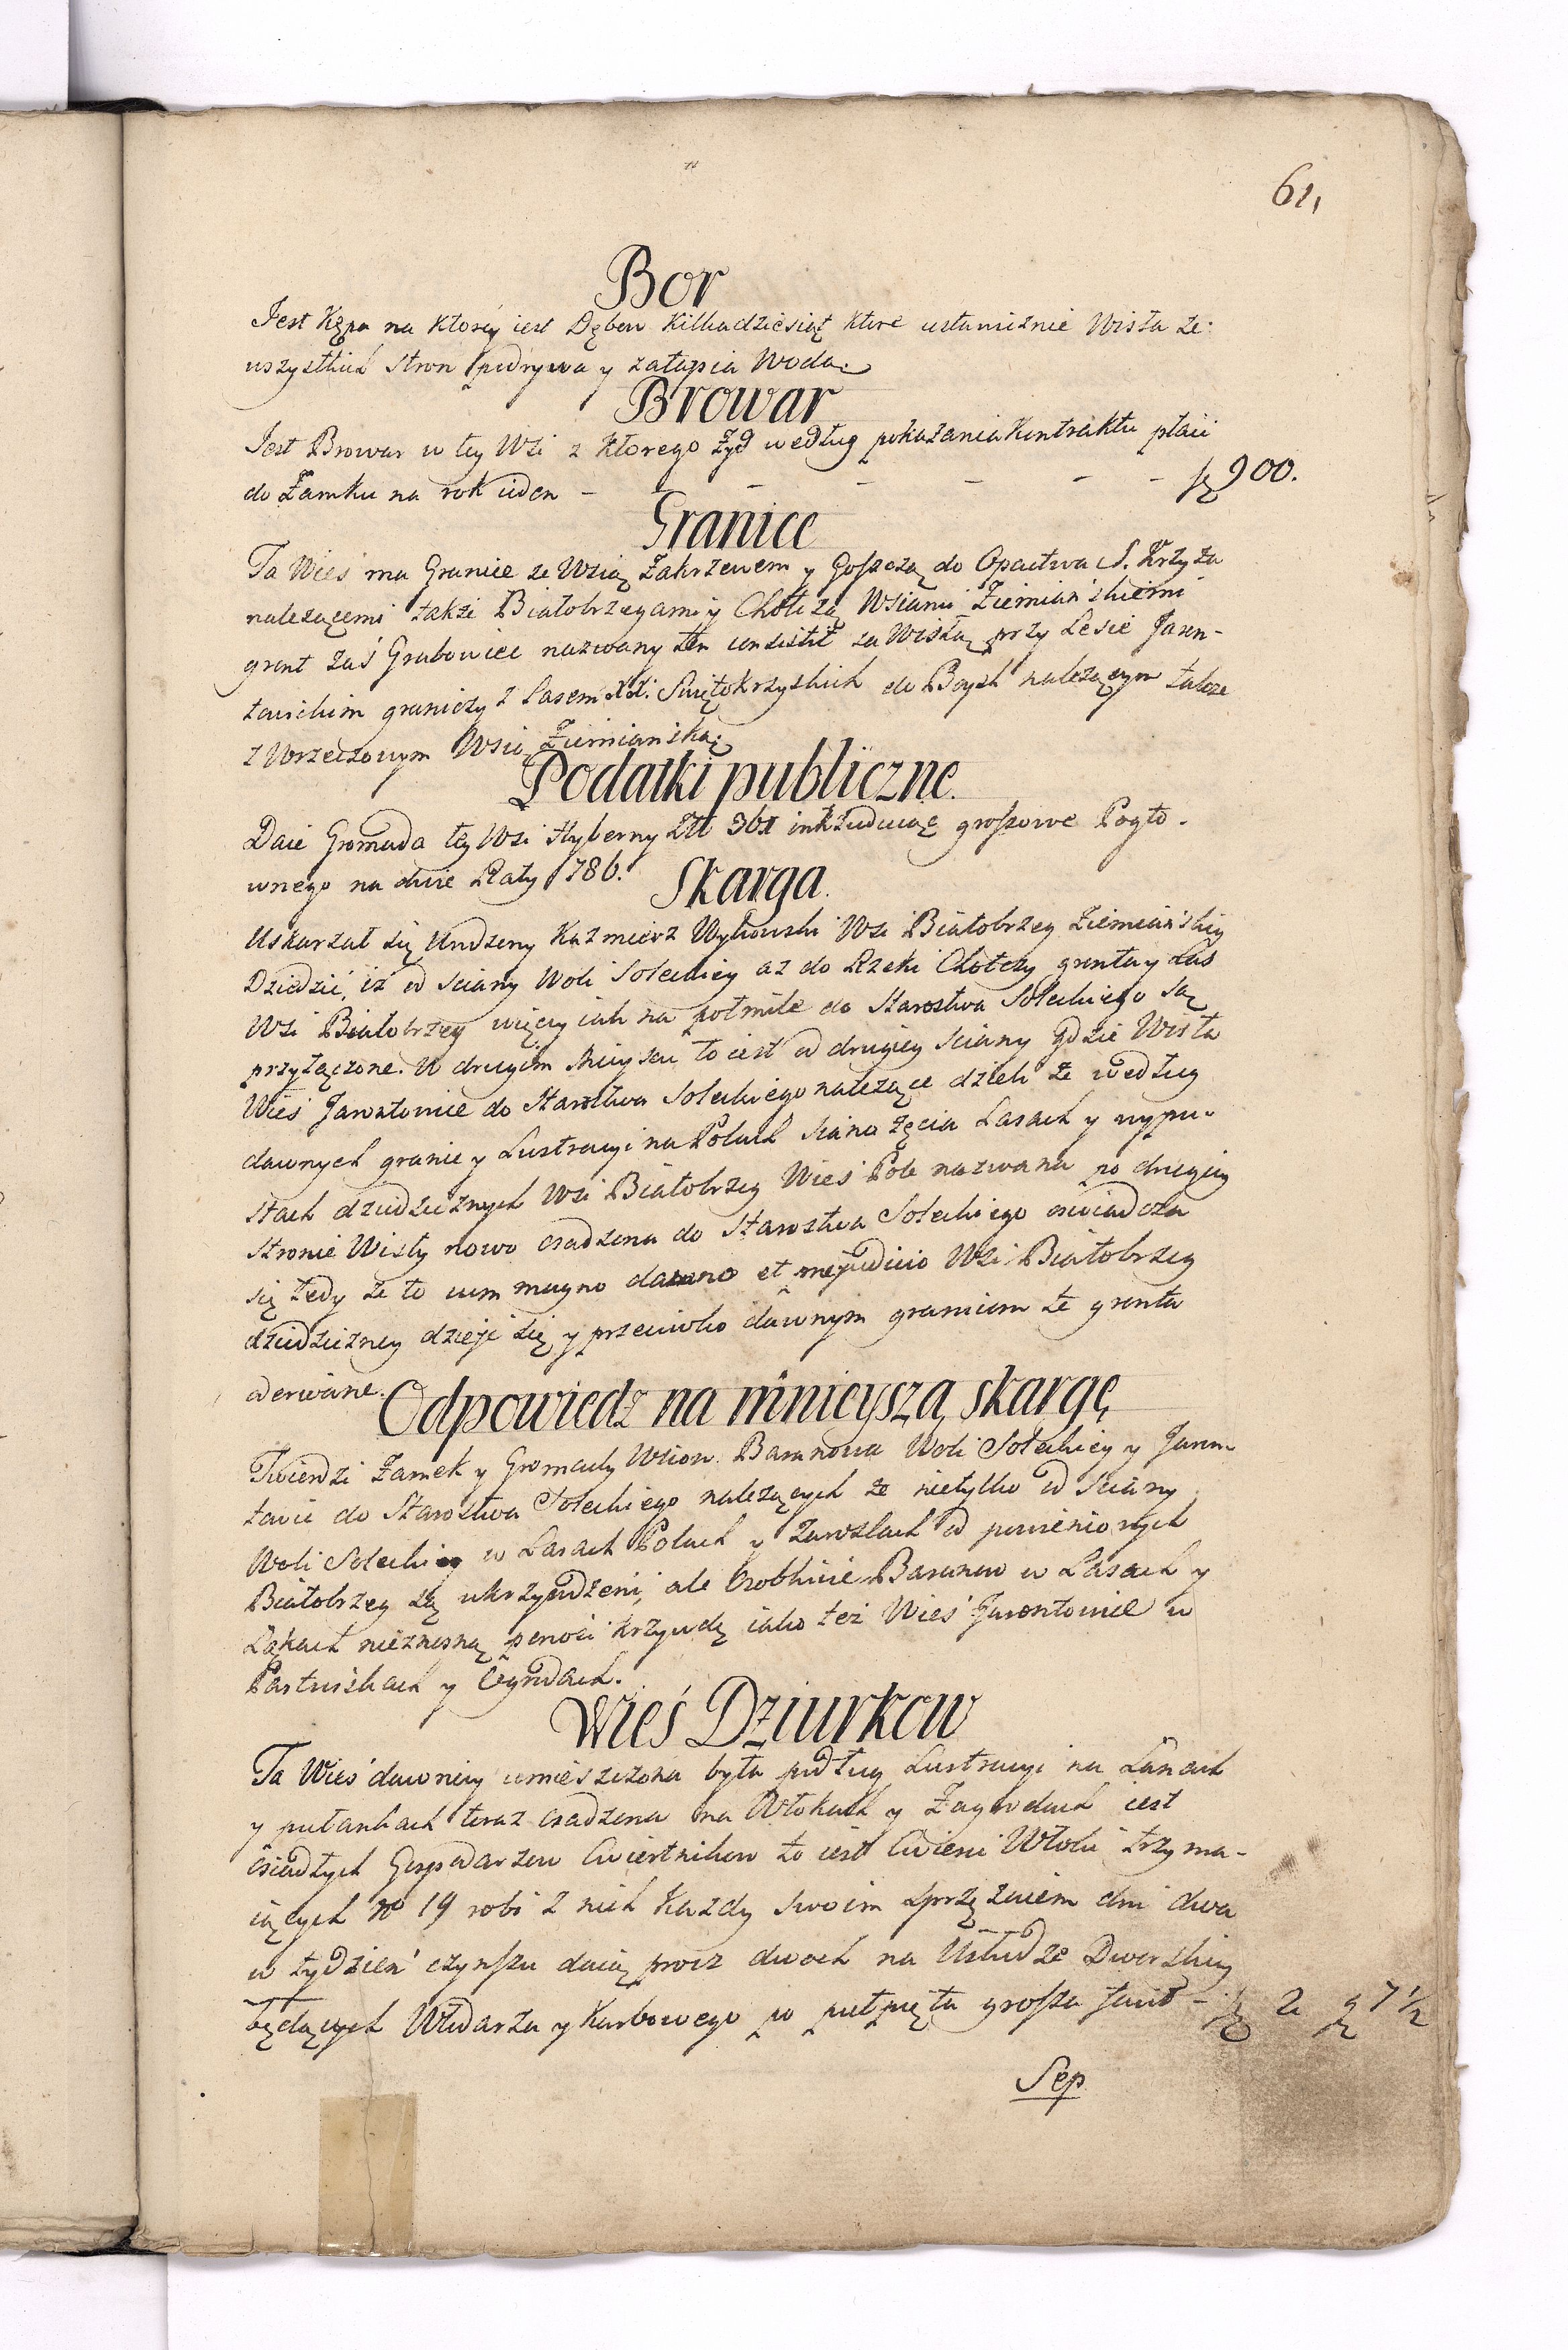 61,
Bor
Jest Kępa na ktorey iest Dębow kilkadziesiąt ktore ustawicznie Wisła ze
wszystkich stron podrywa y zatapia Woda.
Browar
Jest Browar w tey Wsi z ktorego Żyd według pokazania Kontraktu płaci
do Zamku na rok ieden - - - - - - - 900.
Granice
Ta Wieś ma Granice ze Wsią Zakrzewem y Goszczą do Opactwa S. Krzyża
nalezącemi także Białobrzegami y Chotczą Wsiami Ziemiańskiemi
gront zaś Grabowiec nazwany ten consistit za Wisłą przy Lesie Jaron-
towskim graniczy z Lasem XX. Swiętokrzyskich do Boysk nalezącym także
z Wrzelowym Wsią Ziemianską
Podatki publiczne.
Daie Gromada tey Wsi Hyberny Złt 361 inkluduiąc groszowe Pogło-
wnego na dwie Raty 186.
Skarga.
Uskarzał się Urodzony Kazmierz Wykowski Wsi Białobrzeg Ziemiańskiey
Dziedzic, iż od sciany Woli Soleckiey az do Rzeki Chotczy gronta y Las
Wsi Białobrzeg więcey iak na połmile do Starostwa Soleckiego są
przyłączone. W drugim Mieyscu to iest od drugiey sciany gdzie Wisła
Wieś Jarontowie do Starostwa Soleckiego nalezące dzieli ze według
dawnych granic y Lustracyi na Polach siana zęcia Lasach y wypu-
stach dziedzicznych Wsi Białobrzeg Wieś Pole nazwana po drugiey
stronie Wisły nowo osadzona do Starostwa Soleckiego oswiadcza
się tedy ze to cum magno damno et prejudicio Wsi Białobrzeg
dziedziczney dzieje się y przeciwko dawnym granicom te gronta
oderwane.
Odpowiedz na ninieyszą skargę
Twierdzi Zamek y Gromady Wsiow Baranowa Woli Soleckiey y Jaron-
towic do Starostwa Soleckiego nalezących ze nietylko od Sciany
Woli Soleckiey w Lasach Polach y Zaroslach od pomienionych
Białobrzeg są ukrzywdzeni, ale osobliwie Baranow w Lasach y
Łąkach nieznosną ponosi krzywdę iako też Wieś Jarontowie w
Pastwiskach y Ogrodach.
Wieś Dziurkow
Ta Wieś dawniey umieszczona była podług Lustracyi na Łanach
y pułankach teraz osadzona na Włokach y Zagrodach iest
osiadłych Gospodarzow Cwiertnikow to iest Cwierć Włoki trzyma-
iących No 19 robi z nich każdy swoim sprzężaiem dni dwa
w tydzień czynszu daią procz dwoch na Usłudze Dworskiey
będących Włodarza y Karbowego po pułpięta grosza facit - 2 7 1/2
Sep